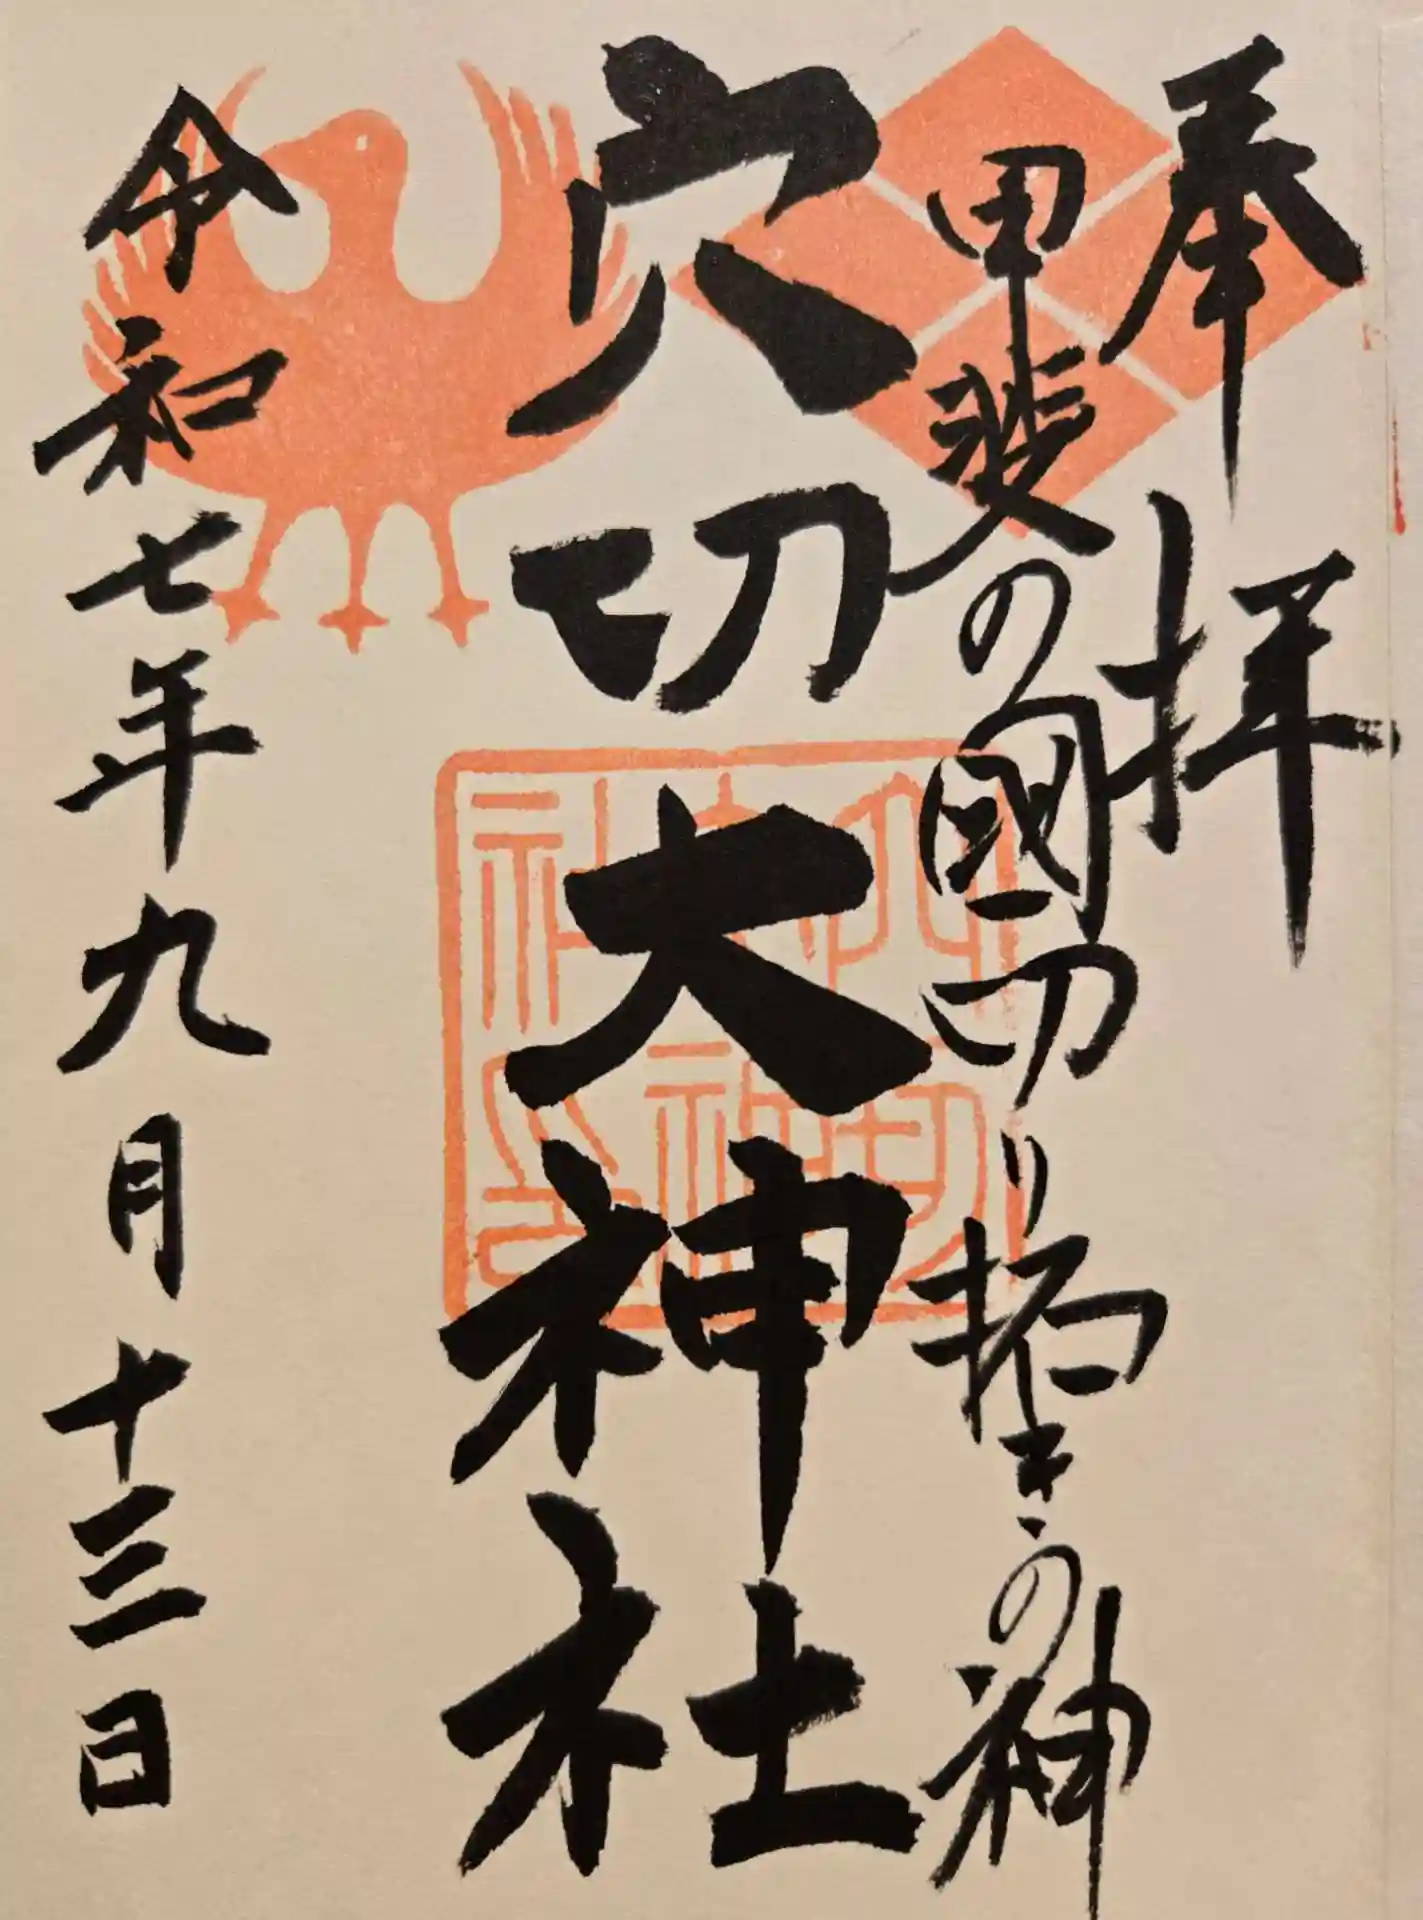 奉拝
甲斐の國切り拓きの神
穴切大神社
令和七年九月十三日
穴切
大神
社印